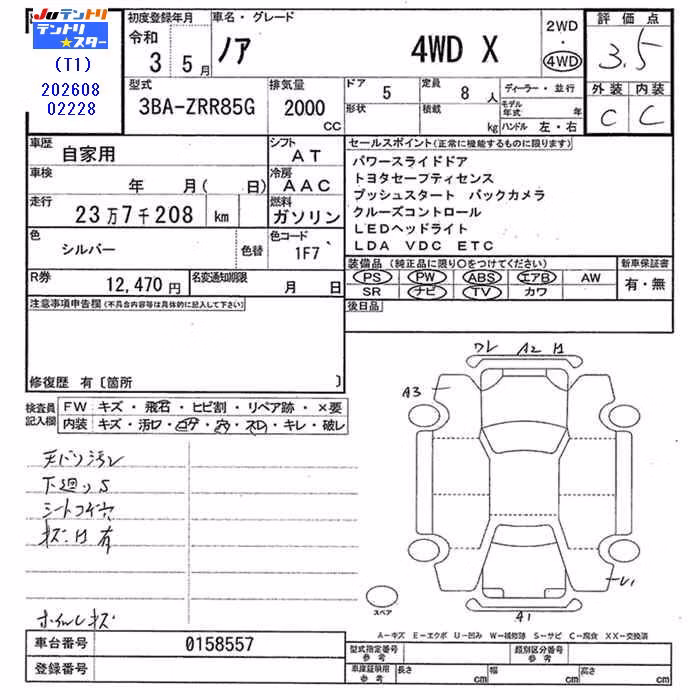 JUテントリ
テントリ
★スター
(T1)
202608
02228
初度登録年月
令和
3 5月
車名・グレード
ノア 4WD X
2WD
・
4WD
評価点
3.5
外装 内装
C C
型式
3BA-ZRR85G
排気量
2000
CC
ドア
5
定員
8人
形状
積載
kg
ディーラー・並行
モデル年式 年
ハンドル 左・右
車歴
自家用
シフト
AT
車検
年 月( 日)
冷房
AAC
走行
23万7千208 km
燃料
ガソリン
色
シルバー
色替
色コード
1F7
R券
12,470円
名変通知期限
月 日
セールスポイント(正常に機能するものに限ります)
パワースライドドア
トヨタセーフティセンス
プッシュスタート バックカメラ
クルーズコントロール
LEDヘッドライト
LDA VDC ETC
装備品(純正品に限り○をつけてください)
PS PW ABS エアB AW
SR ナビ TV カワ
新車保証書
有・無
後日品
注意事項申告欄(不具合内容等は具体的に記入して下さい)
修復歴 有〔箇所 〕
検査員
記入欄
FW キズ・飛石・ヒビ割・リペア跡・×要
内装 キズ・汚れ・コゲ・穴・スレ・キレ・破レ
天バリ汚レ
下廻りS
シートコゲ穴
キズ 有
ホイールキズ
ワレ A2
A3
A1
スペア
A-キズ E-エクボ U-凹み W-補修跡 S-サビ C-腐食 XX-交換済
車台番号
0158557
登録番号
型式指定番号
参考
類別区分番号
参考
車庫証明用
参考
長さ cm
幅 cm
高さ cm